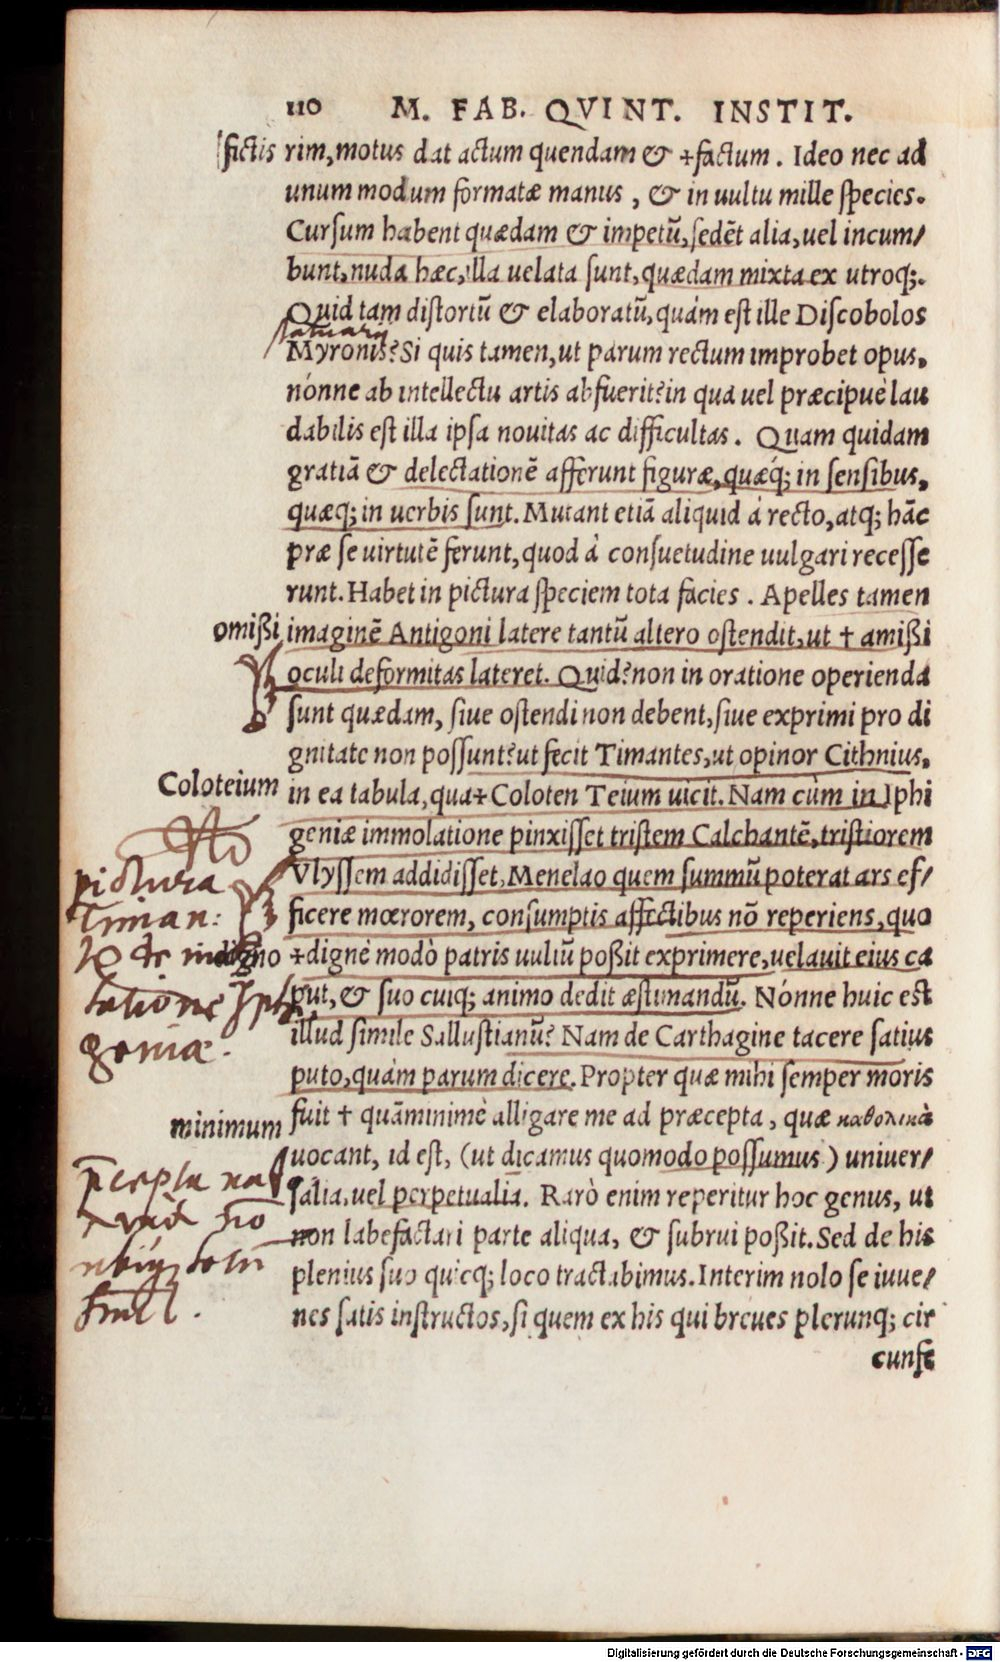 110 M. FAB. QVINT. INSTIT.
fictis rim, motus dat actum quendam & +factum. Ideo nec ad
unum modum formatæ manus, & in uultu mille species.
Cursum habent quædam & impetũ, sedẽt alia, uel incum/
bunt, nuda hæc, illa uelata sunt, quædam mixta ex utroq;.
Quid tam distortũ & elaboratũ, quàm est ille Discobolos
statuarij
Myronis? Si quis tamen, ut parum rectum improbet opus,
nónne ab intellectu artis abfuerit? in qua uel præcipuè lau
dabilis est illa ipsa nouitas ac difficultas. Quam quidam
gratiã & delectationẽ afferunt figuræ, quæq; in sensibus,
quæq; in uerbis sunt. Mutant etiã aliquid á recto, atq; hãc
præ se uirtutẽ ferunt, quod à consuetudine uulgari recesse
runt. Habet in pictura speciem tota facies. Apelles tamen
omißi imaginẽ Antigoni latere tantũ altero ostendit, ut † amißi
oculi deformitas lateret. Quid? non in oratione operienda
sunt quædam, siue ostendi non debent, siue exprimi pro di
gnitate non possunt? ut fecit Timantes, ut opinor Cithnius,
Coloteium in ea tabula, qua+ Coloten Teium uicit. Nam cùm in Iphi
geniæ immolatione pinxisset tristem Calchantẽ, tristiorem
Vlyssem addidisset, Menelao quem summũ poterat ars ef/
ficere mœrorem, consumptis affectibus nõ reperiens, quo
digno +dignè modò patris uultũ poßit exprimere, uelauit eius ca
put, & suo cuiq; animo dedit æstimandũ. Nónne huic est
illud simile Sallustianũ? Nam de Carthagine tacere satius
puto, quàm parum dicere. Propter quæ mihi semper moris
minimum fuit † quãminimè alligare me ad præcepta, quæ καθολικὰ
uocant, id est, (ut dicamus quomodo possumus) uniuer/
salia, uel perpetualia. Rarò enim reperitur hoc genus, ut
non labefactari parte aliqua, & subrui poßit. Sed de his
plenius suo quicq; loco tractabimus. Interim nolo se iuue/
nes satis instructos, si quem ex his qui breues plerunq; cir
cunfe
pictura
Timan:
tatione Iphi
geniæ.
Digitalisierung gefördert durch die Deutsche Forschungsgemeinschaft - DFG